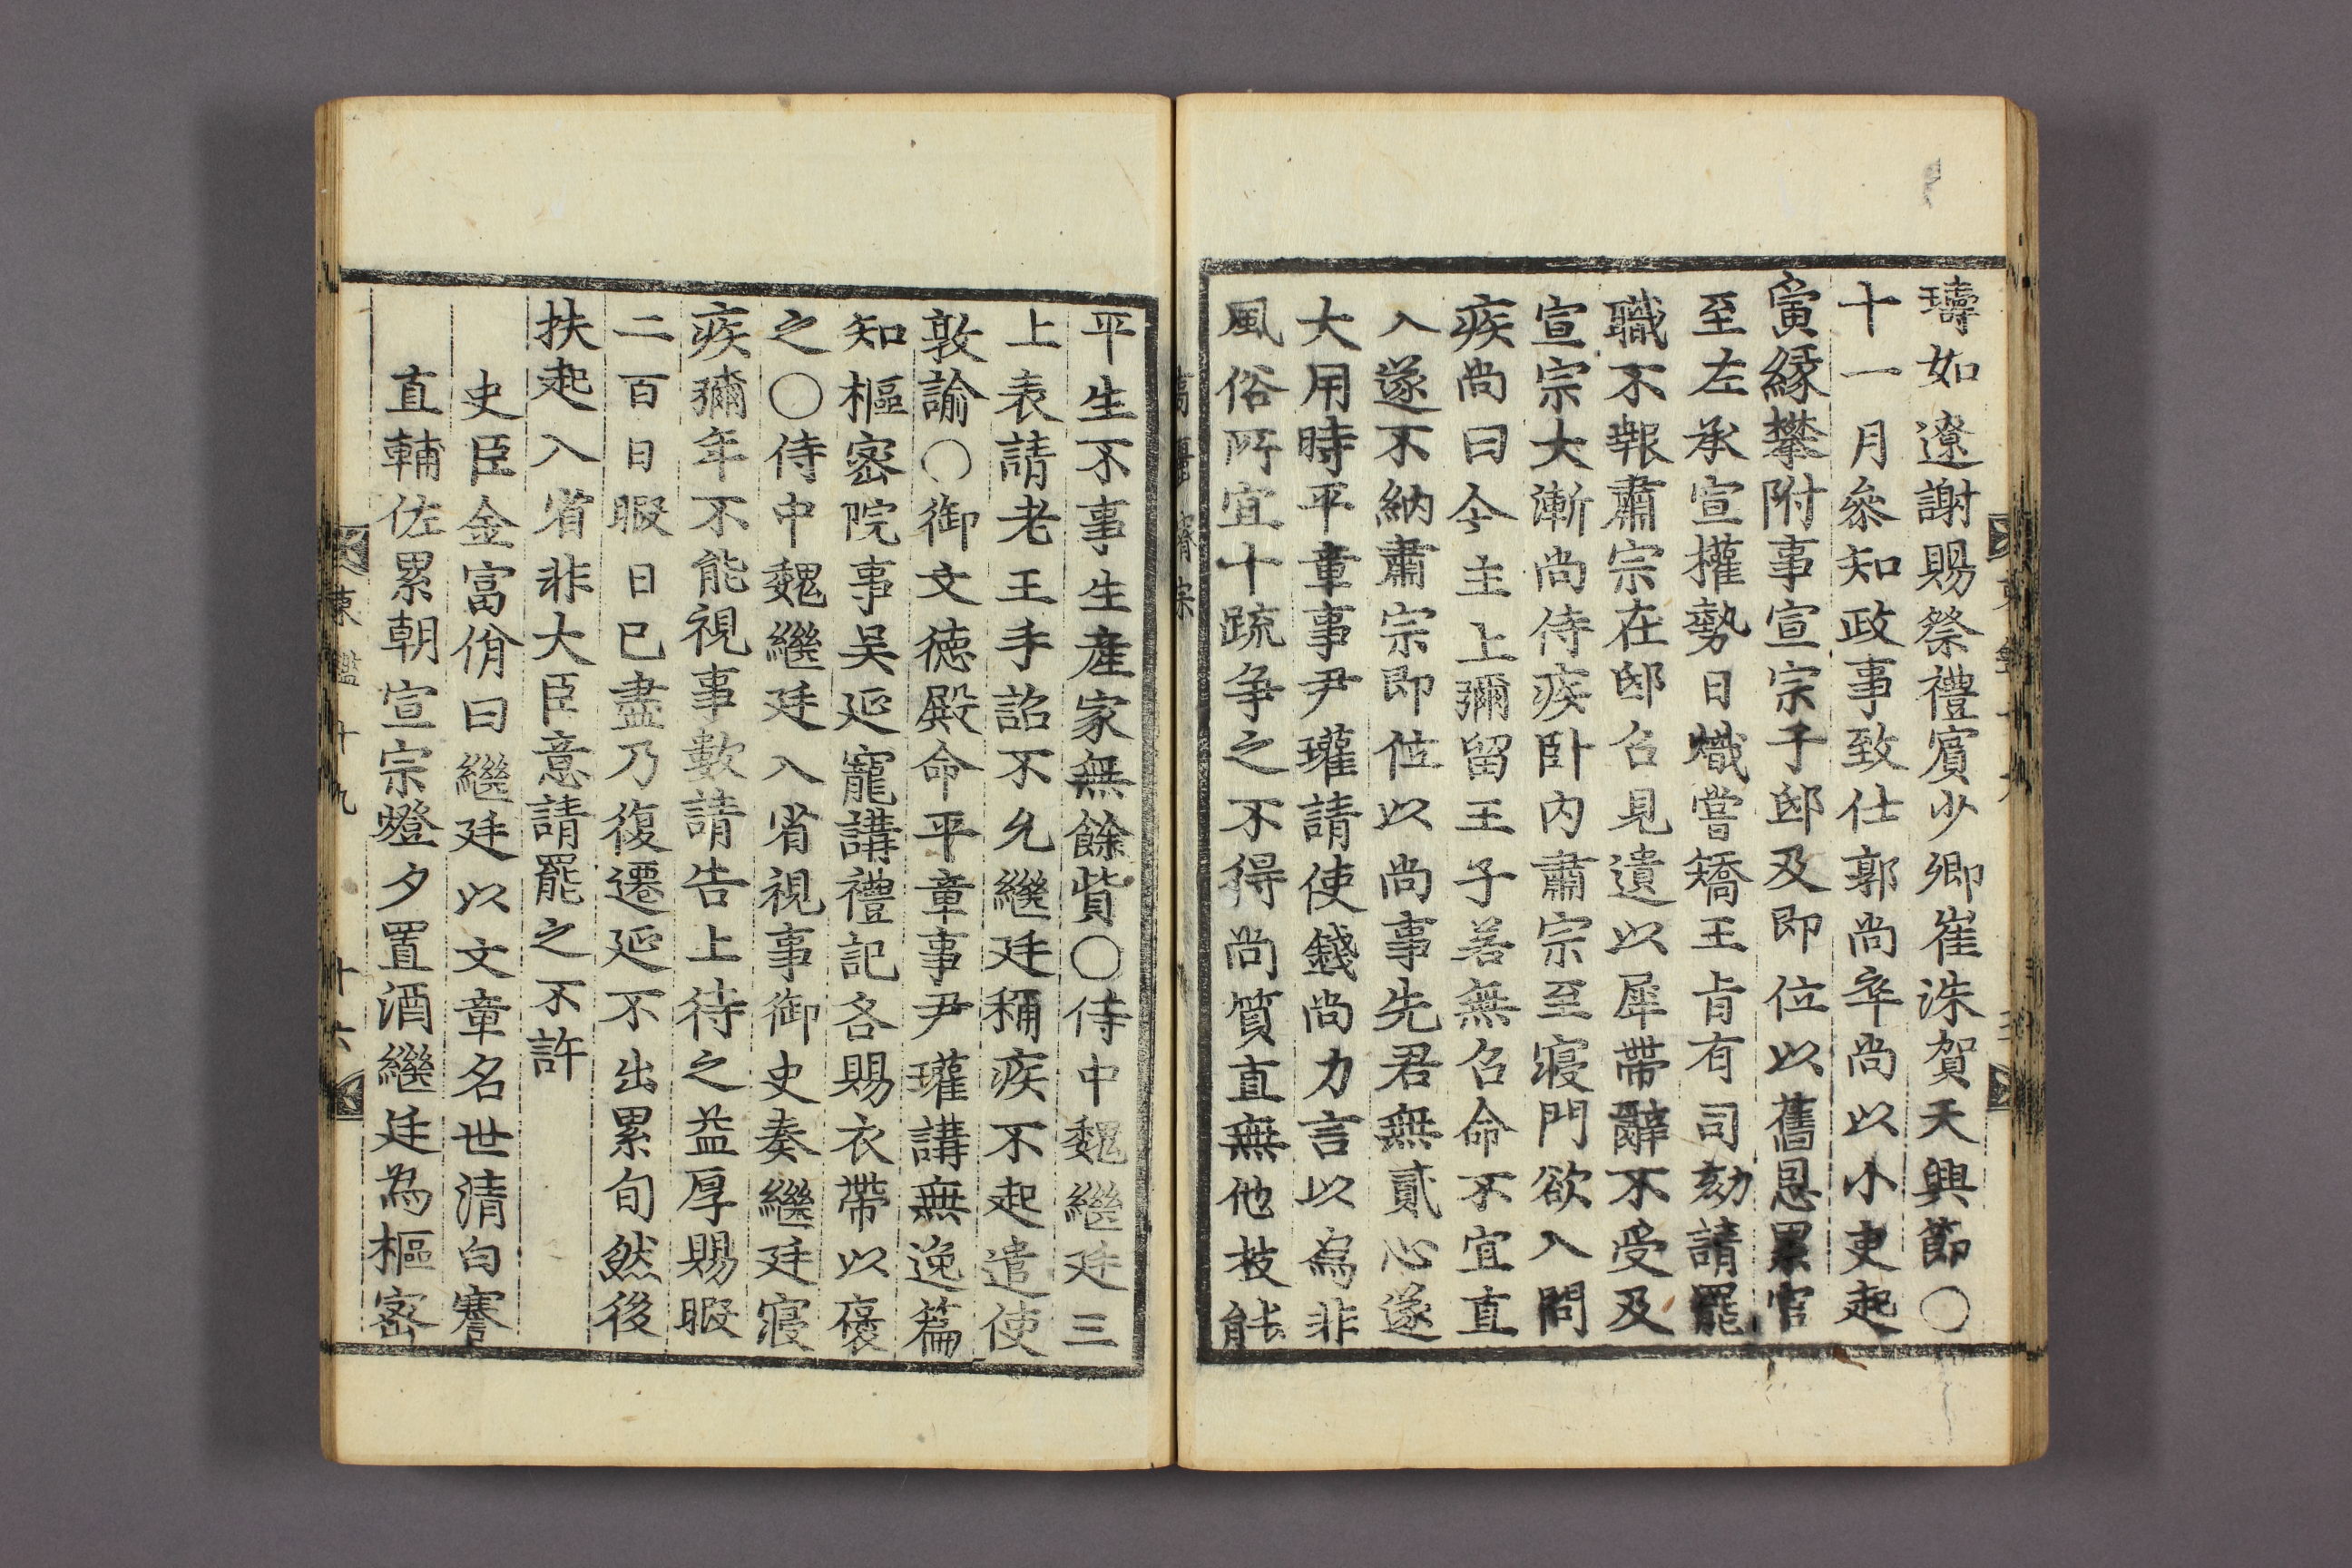 璹如遼謝賜祭禮賔少卿崔洙賀天興節〇
十一月叅知政事致仕郭尚卒尚以小吏起
夤緣攀附事宣宗于邸及即位以舊恩累官
至左承宣權勢日熾嘗矯王㫖有司劾請罷
職不報肅宗在邸召見遺以犀帶辭不受及
宣宗大漸尚侍疾卧内肅宗至寢門欲入問
疾尚曰今主上彌留王子善無召命不宜直
入遂不納肅宗即位以尚事先君無貳心遂
大用時平章事尹瓘請使錢尚力言以為非
風俗所宜十䟽争之不得尚質直無他技能
平生不事生產家無餘貲〇侍中魏繼廷三
上表請老王手詔不允繼廷稱疾不起遣使
敦諭〇御文德殿命平章事尹瓘講無逸篇
知樞密院事吴延寵講禮記各賜衣帶以襃
之〇侍中魏繼廷入省視事御史奏繼廷寢
疾彌年不能視事數請告上待之益厚賜暇
二百日暇日已盡乃復遷延不出累旬然後
扶起入省非大臣意請罷之不許
史臣金富佾曰繼廷以文章名世清白謇
直輔佐累朝宣宗燈夕置酒繼廷為樞密
東鑑十九
十六